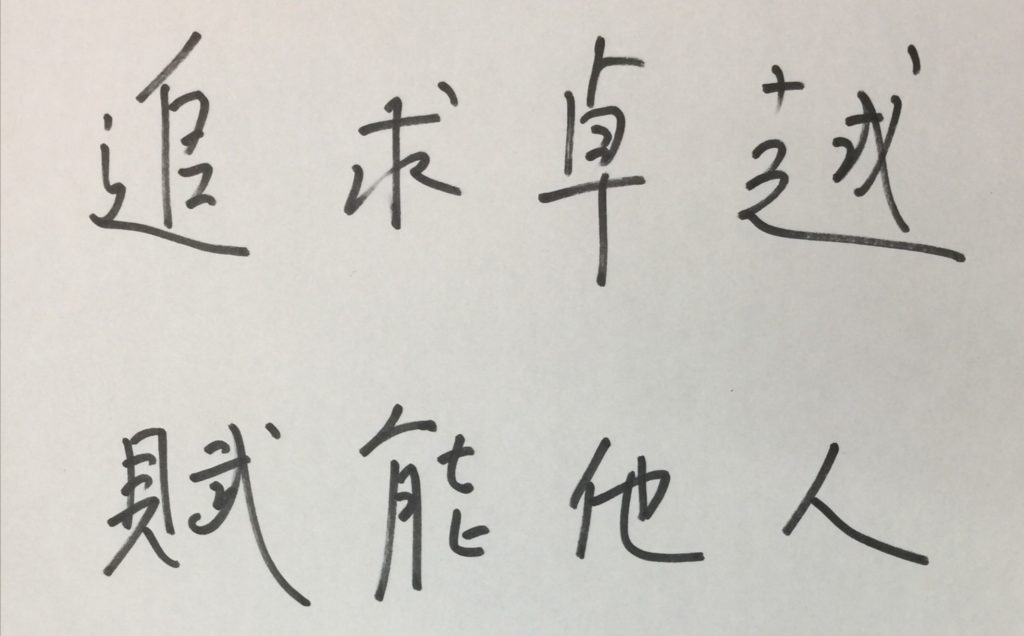 追求卓越
賦能他人